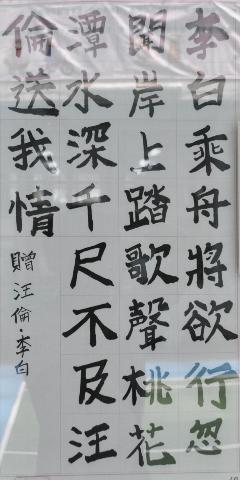 李白乘舟將欲行忽
聞岸上踏歌聲桃花
潭水深千尺不及汪
倫送我情
贈汪倫·李白